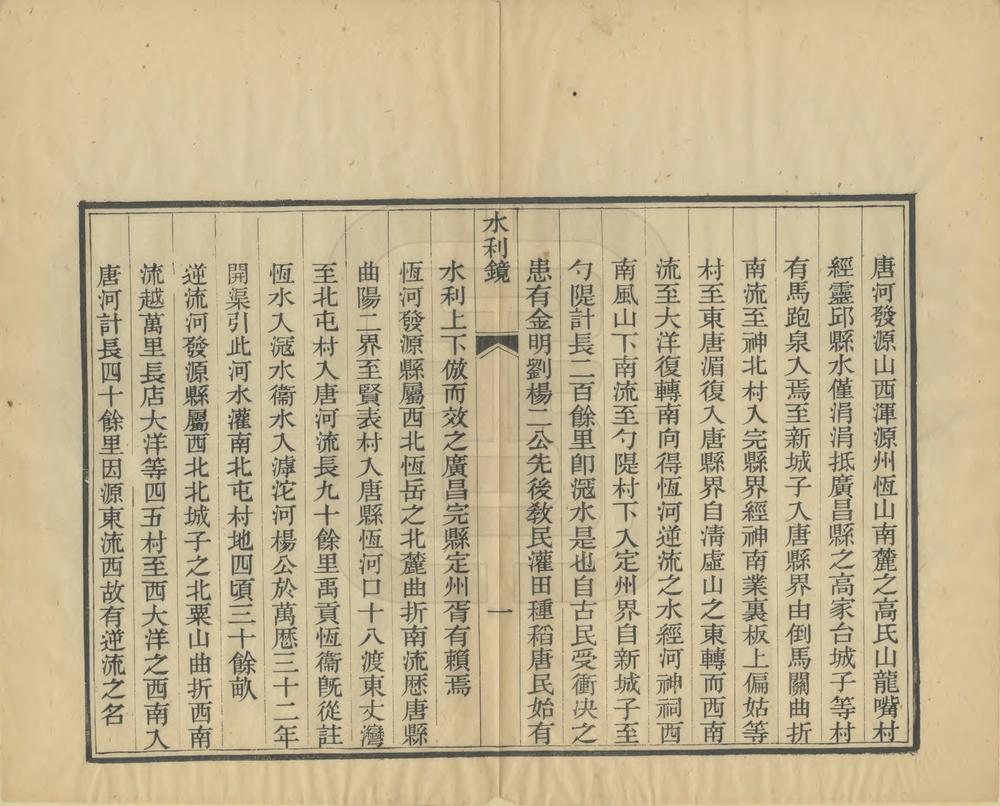 唐河發源山西渾源州恆山南麓之高氏山龍嘴村
經靈邱縣水僅涓涓抵廣昌縣之高家台城子等村
有馬跑泉入焉至新城子入唐縣界由倒馬關曲折
南流至神北村入完縣界經神南業裏板上偏姑等
村至東唐湄復入唐縣界自淸虛山之東轉而西南
流至大洋復轉南向得恆河逆流之水經河神祠西
南風山下南流至勺隄村下入定州界自新城子至
勺隄計長二百餘里卽㴲水是也自古民受衝決之
患有金明劉楊二公先後敎民灌田種稻唐民始有
水利鏡
一
水利上下倣而效之廣昌完縣定州胥有賴焉
恆河發源縣屬西北恆岳之北麓曲折南流歷唐縣
曲陽二界至賢表村入唐縣恆河口十八渡東丈灣
至北屯村入唐河流長九十餘里禹貢恆衞旣從註
恆水入㴲水衞水入滹沱河楊公於萬歷三十二年
開渠引此河水灌南北屯村地四頃三十餘畝
逆流河發源縣屬西北北城子之北粟山曲折西南
流越萬里長店大洋等四五村至西大洋之西南入
唐河計長四十餘里因源東流西故有逆流之名